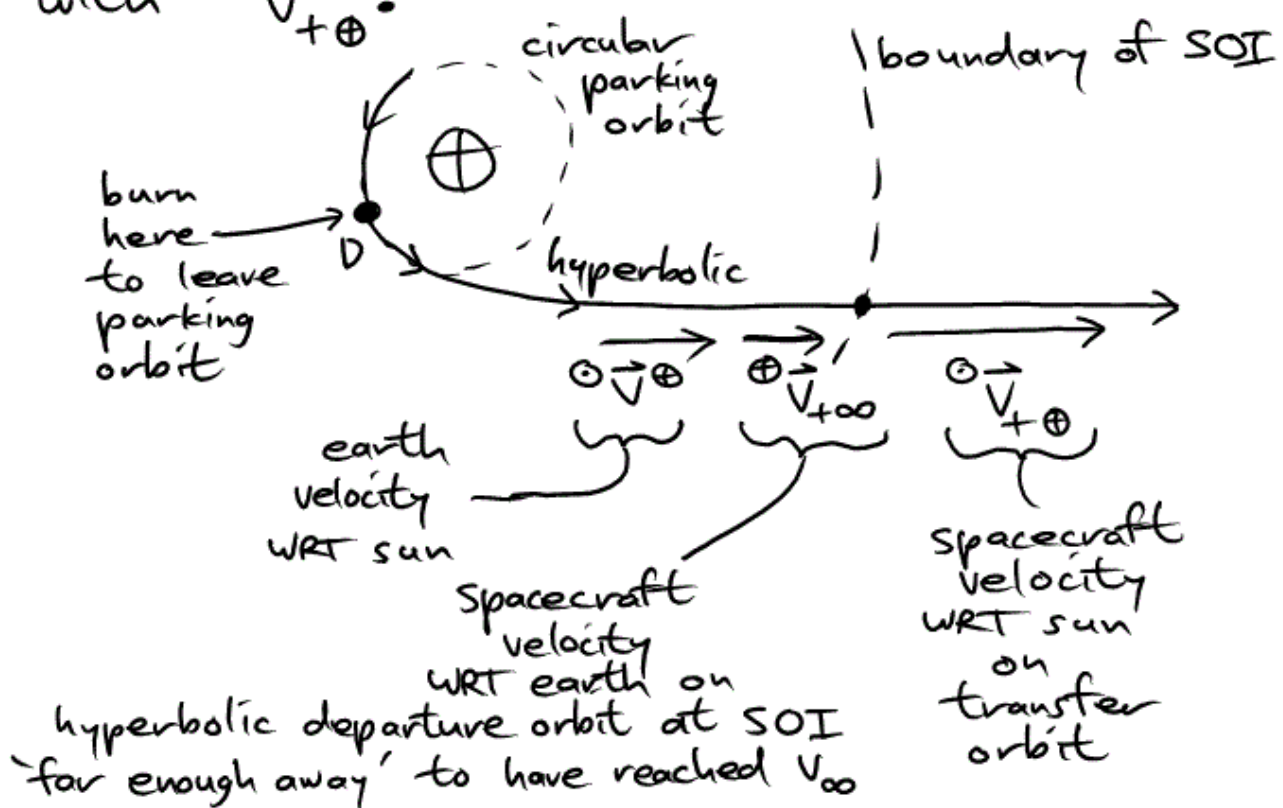 with V+⊕.
circular
parking
orbit
boundary of SOI
burn
here
to leave
parking
orbit
D
hyperbolic
⊙V⃗⊕
⊕V⃗+∞
⊙V⃗+⊕
earth
velocity
WRT sun
spacecraft
velocity
WRT earth on
hyperbolic departure orbit at SOI
'far enough away' to have reached V∞
spacecraft
velocity
WRT sun
on
transfer
orbit